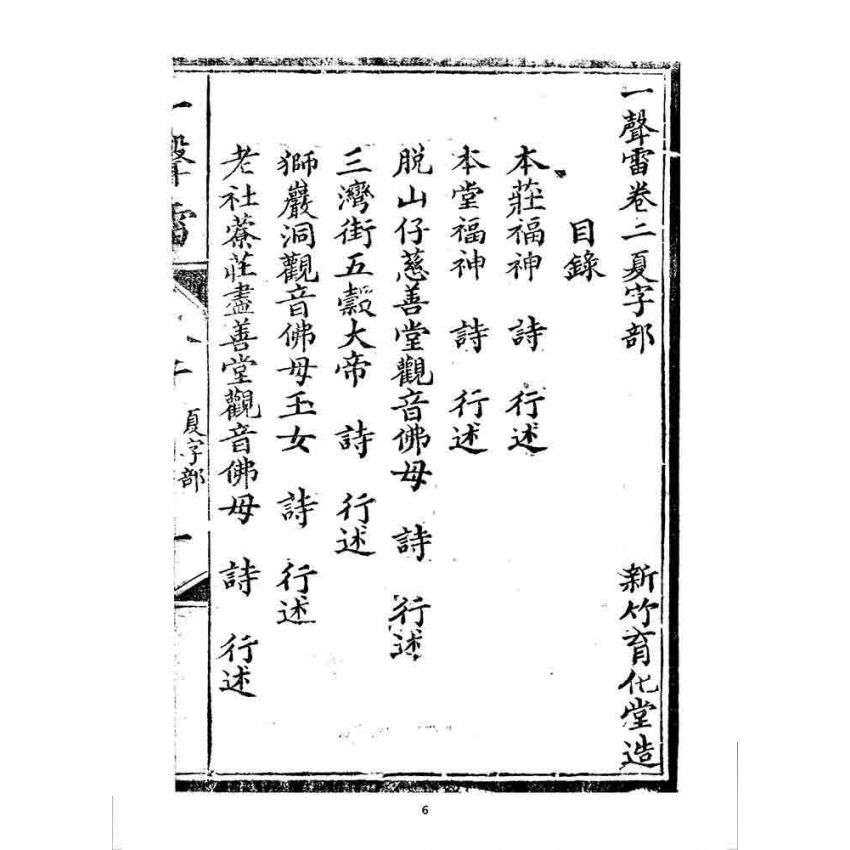 一聲雷卷二夏字部　新竹育化堂造
目錄
本莊福神　詩　行述
本堂福神　詩　行述
脫山仔慈善堂觀音佛母　詩　行述
三灣街五穀大帝　詩　行述
獅巖洞觀音佛母玉女　詩　行述
老社藔莊盡善堂觀音佛母　詩　行述
一聲雷　夏字部　一
6